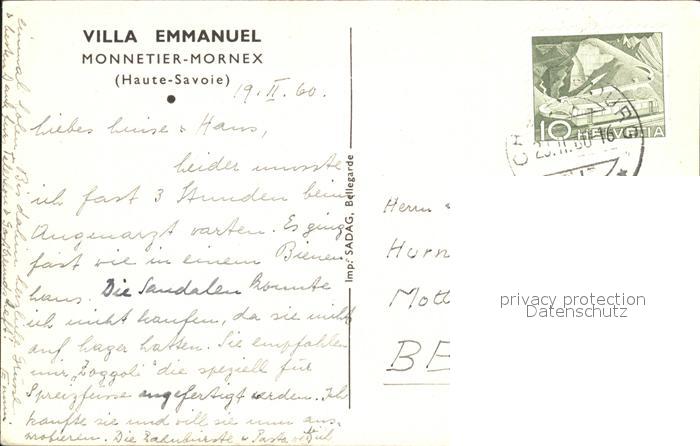 VILLA EMMANUEL
MONNETIER-MORNEX
(Haute-Savoie)
19. II. 60.
Liebes Luise & Hans,
Leider musste
ich fast 3 Stunden beim
Augenarzt warten. Es ging
fast wie in einem Bienen
haus. Die Sandalen konnte
ich nicht kaufen, da sie nicht
auf Lager hatten. Sie empfahlen
mir "Zoggoli" die speziell für
Spreizfüsse angefertigt werden. Ich
kaufte sie und will sie nun aus-
probieren. Die Zahnbürste & Pasta
einmal
Bis dahin herzliche Grüsse
Imp. SADAG, Bellegarde
10 HELVETIA
Herrn
Hurn
Mott
BE
privacy protection
Datenschutz